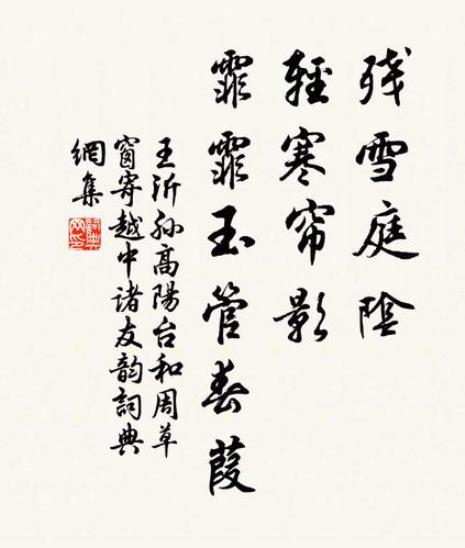 残雪庭陰
輕寒帘影
霏霏玉管春葭
王沂孙高陽台和周草
窗寄越中諸友韵詞典
網集